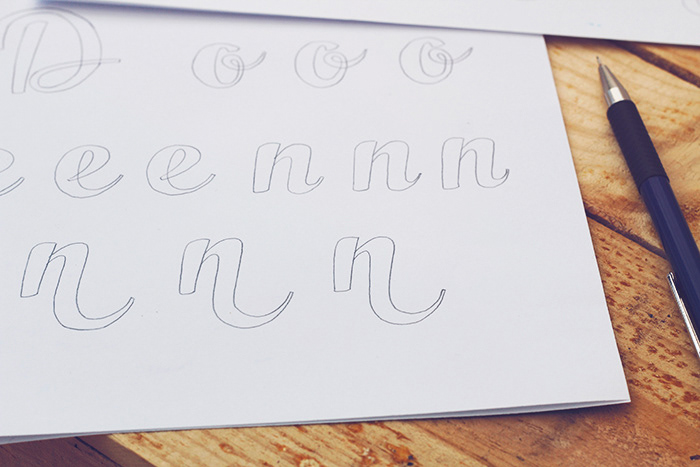 D o o o
e e e n n n
n n n